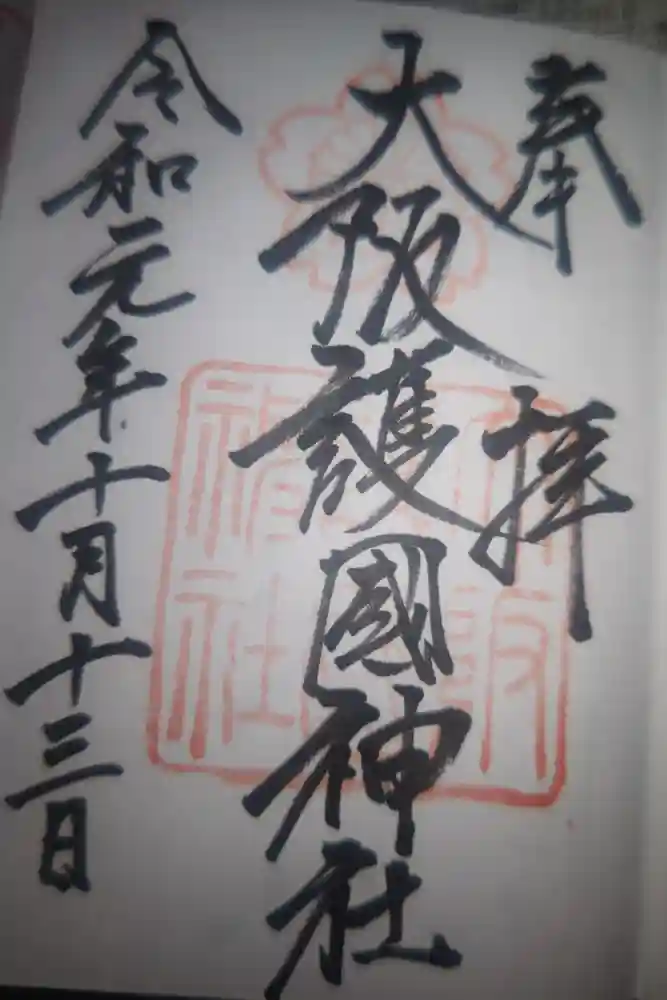 奉拝
大阪護國神社
令和元年十月十三日